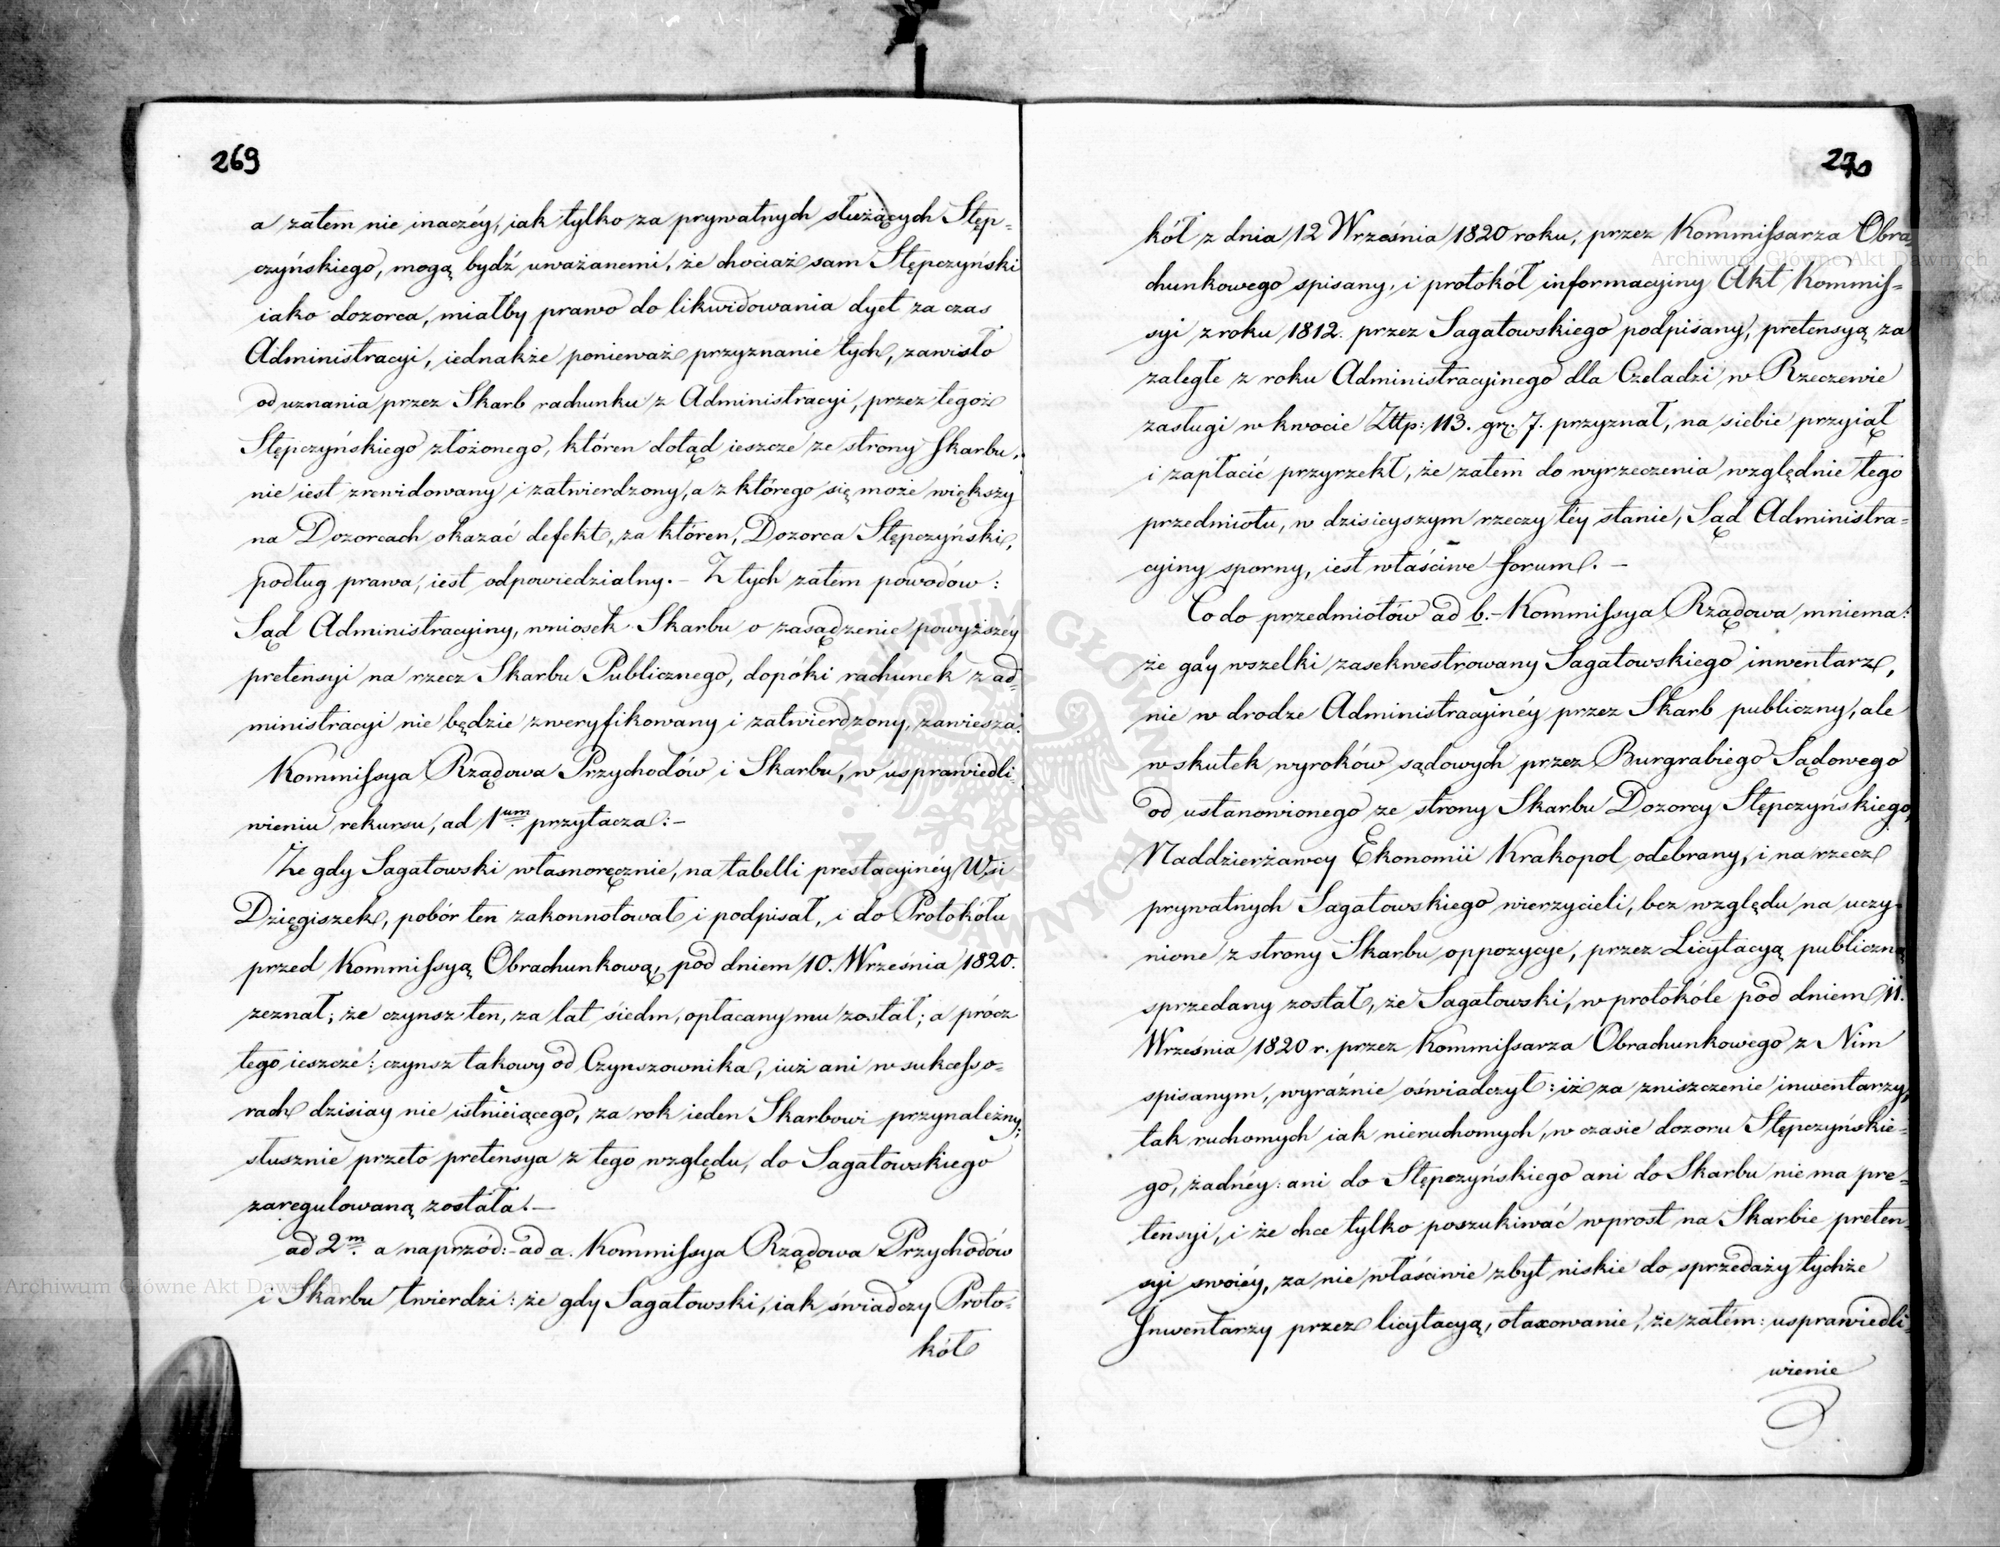 269
a zatem nie inaczéy, iak tylko za prywatnych służących Stęp-
czyńskiego, mogą bydź uważanemi, że chociaż sam Stępczyński
iako dozorca, miałby prawo do likwidowania dyet za czas
Administracyi, iednakże ponieważ przyznanie tych, zawisło
od uznania przez Skarb rachunku z Administracyi, przez tegoż
Stępczyńskiego złożonego, któren dotąd ieszcze ze strony Skarbu,
nie iest zrewidowany i zatwierdzony, a z którego się może większy
na Dozorcach okazać defekt, za któren, Dozorca Stępczyński,
podług prawa, iest odpowiedzialny. – Z tych zatem powodów:
Sąd Administracyiny, wniosek Skarbu o zasądzenie powyższéy
pretensyi na rzecz Skarbu Publicznego, dopóki rachunek z ad-
ministracyi nie będzie zweryfikowany i zatwierdzony, zawiesza.
Kommissya Rządowa Przychodów i Skarbu, w usprawiedli-
wieniu rekursu, ad 1um. przytacza: –
Że gdy Sagatowski własnoręcznie, na tabelli prestacyinéy Wsi
Dzięgiszek, pobór ten zakonnotował i podpisał, i do Protokółu
przed Kommissyą Obrachunkową, pod dniem 10. Września 1820.
zeznał; że czynsz ten, za lat siedm, opłacany mu został; a prócz
tego ieszcze: czynsz takowy od Czynszownika, iuż ani w sukcesso-
rach dzisiay nie istnieiącego, za rok ieden Skarbowi przynależny;
słusznie przeto pretensya z tego względu, do Sagatowskiego
zaregulowaną została. –
ad 2m. a naprzód: – ad a. Kommissya Rządowa Przychodów
i Skarbu twierdzi: że gdy Sagatowski, iak świadczy Proto-
kół
270
kół z dnia 12 Września 1820 roku, przez Kommissarza Obra
chunkowego spisany, i protokół informacyiny Akt Kommis-
syi z roku 1812. przez Sagatowskiego podpisany, pretensyą za
zaległe z roku Administracyinego dla Czeladzi w Rzeczewie
zasługi w kwocie Złtp: 113. gr. 7. przyznał, na siebie przyiął
i zapłacić przyrzekł, że zatem do wyrzeczenia względnie tego
przedmiotu, w dzisieyszym rzeczy téy stanie, Sąd Administra-
cyiny sporny, iest właściwe forum. –
Co do przedmiotów ad b. – Kommissya Rządowa mniema:
że gdy wszelki zasekwestrowany Sagatowskiego inwentarz,
nie w drodze Administracyinéy przez Skarb publiczny, ale
w skutek wyroków sądowych przez Burgrabiego Sądowego
od ustanowionego ze strony Skarbu Dozorcy Stępczyńskiego,
Naddzierżawcy Ekonomii Krakopol odebrany, i na rzecz
prywatnych Sagatowskiego wierzycieli, bez względu na uczy-
nione z strony Skarbu oppozycye, przez Licytacyą publiczną
sprzedany został, że Sagatowski, w protokóle pod dniem 11.
Września 1820 r. przez Kommissarza Obrachunkowego z Nim
spisanym, wyraźnie oświadczył: iż za zniszczenie inwentarzy,
tak ruchomych iak nieruchomych, w czasie dozoru Stępczyńskie-
go, żadnéy: ani do Stępczyńskiego ani do Skarbu nie ma pre-
tensyi, i że chce tylko poszukiwać wprost na Skarbie preten-
syi swoiéy, za nie właściwie zbyt niskie do sprzedaży tychże
Inwentarzy przez licytacyą, otaxowanie, że zatém: usprawiedli-
wienie
Archiwum Główne Akt Dawnych
Archiwum Główne Akt Dawnych
ARCHIWUM GŁÓWNE AKT DAWNYCH